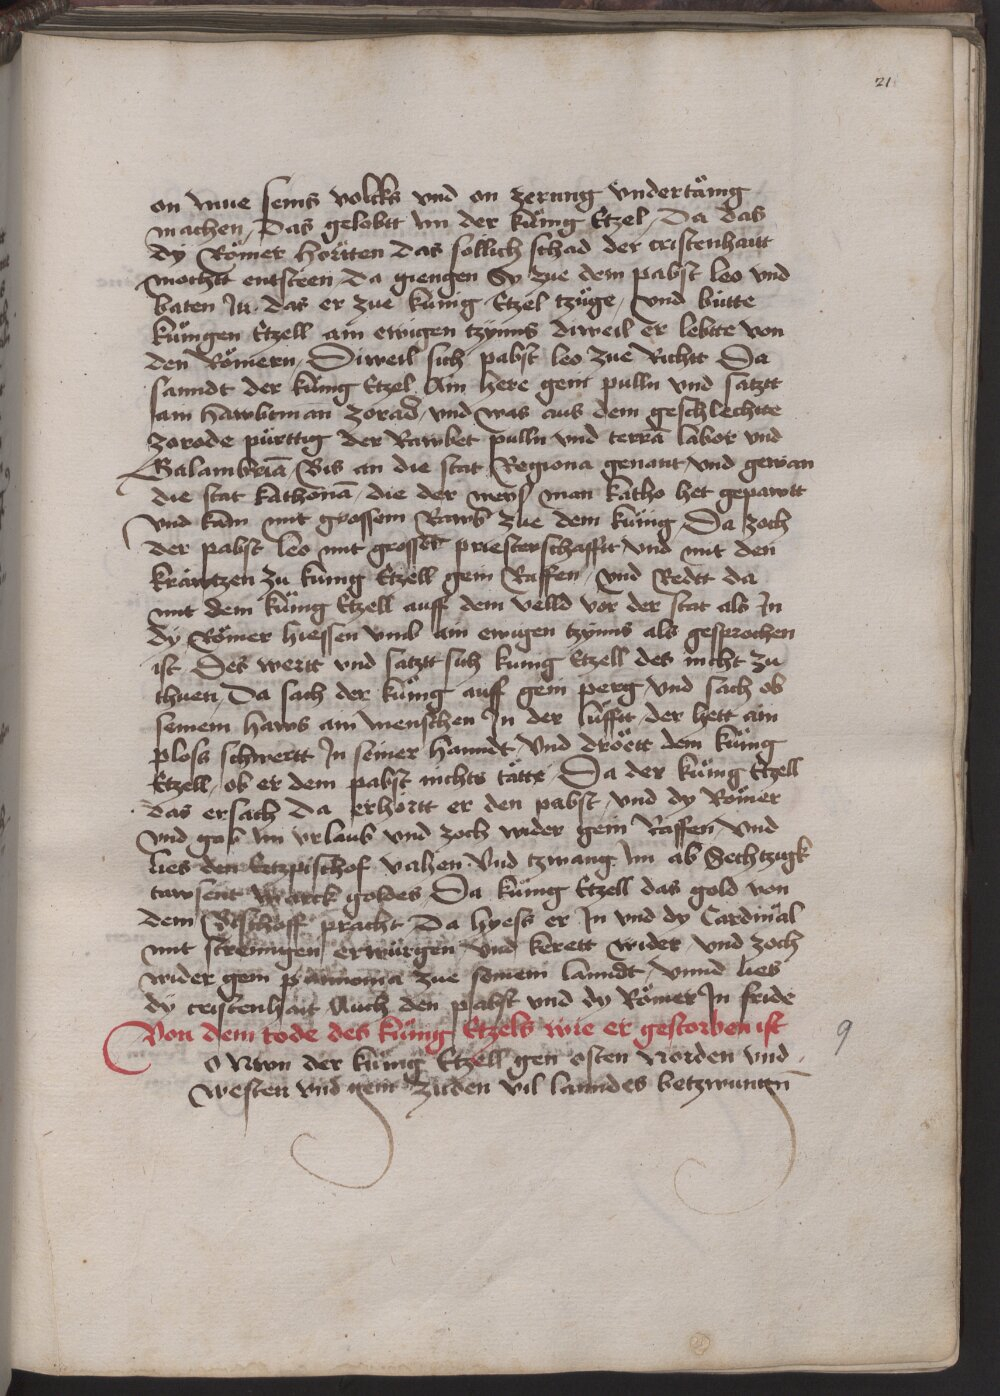 21
on mue seins volcks vnd on zerung vndertänig
machen / Das gelobtt im der künig Etzel / Da das
dy Römer horitten das sollich schad der cristenhaitt
mochtt entsteen / Da giengen Sy zue dem pabst leo vnd
baten In / das er zue künig Etzel tzüge / vnd bütte
künigen Etzell ain ewigen tzynns diweil er lebtte von
den Römern / Diweil sich pabst leo zue Richtt Da
sanndt der künig Etzel Ain here gein pulln vnd satztt
ain hawbtman zorad / vnd was aus dem geschlechtte
zorode pürttig der Rawbet pulln vnd terra labor vnd
Galambria / Bis an die stat Regiona genant / vnd gewan
die stat kathona / die der weys man katho het gepawtt
vnd kam mit grossem Rawb zue dem künig / Da zoch
der pabst leo mit grosser priesterschafftt vnd mit den
kräwtzen zu künig Etzell gein Raffen / vnd Redtt da
mit dem künig Etzell auff dem velld vor der stat als In
dy Römer hiessen vmb ain ewigen tzynns als gesprochen
ist Des wertt vnd satztt sich kunig Etzell des nicht zu
thuen / Da sach der künig auff gein perg / vnd sach ob
seinem haws ain menschen In der lüfftt / der hett ain
ploss schwertt In seiner hanndt / vnd dröett dem künig
Etzell / ob er dem pabst nichts tätte / Da der künig Etzell
das ersach Da erhörtt er den pabst / vnd dy Römer
vnd gab im vrlaub vnd zoch wider gein Raffen / vnd
lies den Ertzpischof vahen Vnd tzwang im ab Sechtzigk
tawsent Marck goldes / Da künig Etzell das gold von
dem Bischoff pracht Da hyess er In vnd dy Cardinäl
mit streningen erwürgen / vnd kerett wider vnd zoch
wider gein pannonia zue seinem lanndt / vnnd lies
dy cristenhait Auch den pabst vnd dy Römer In fride
Von dem tode des künig Etzels wie er gestorben ist
9
O Nwn der künig Etzell gen osten Norden vnd
westen vnd gein zuden vil lanndes betzwungen